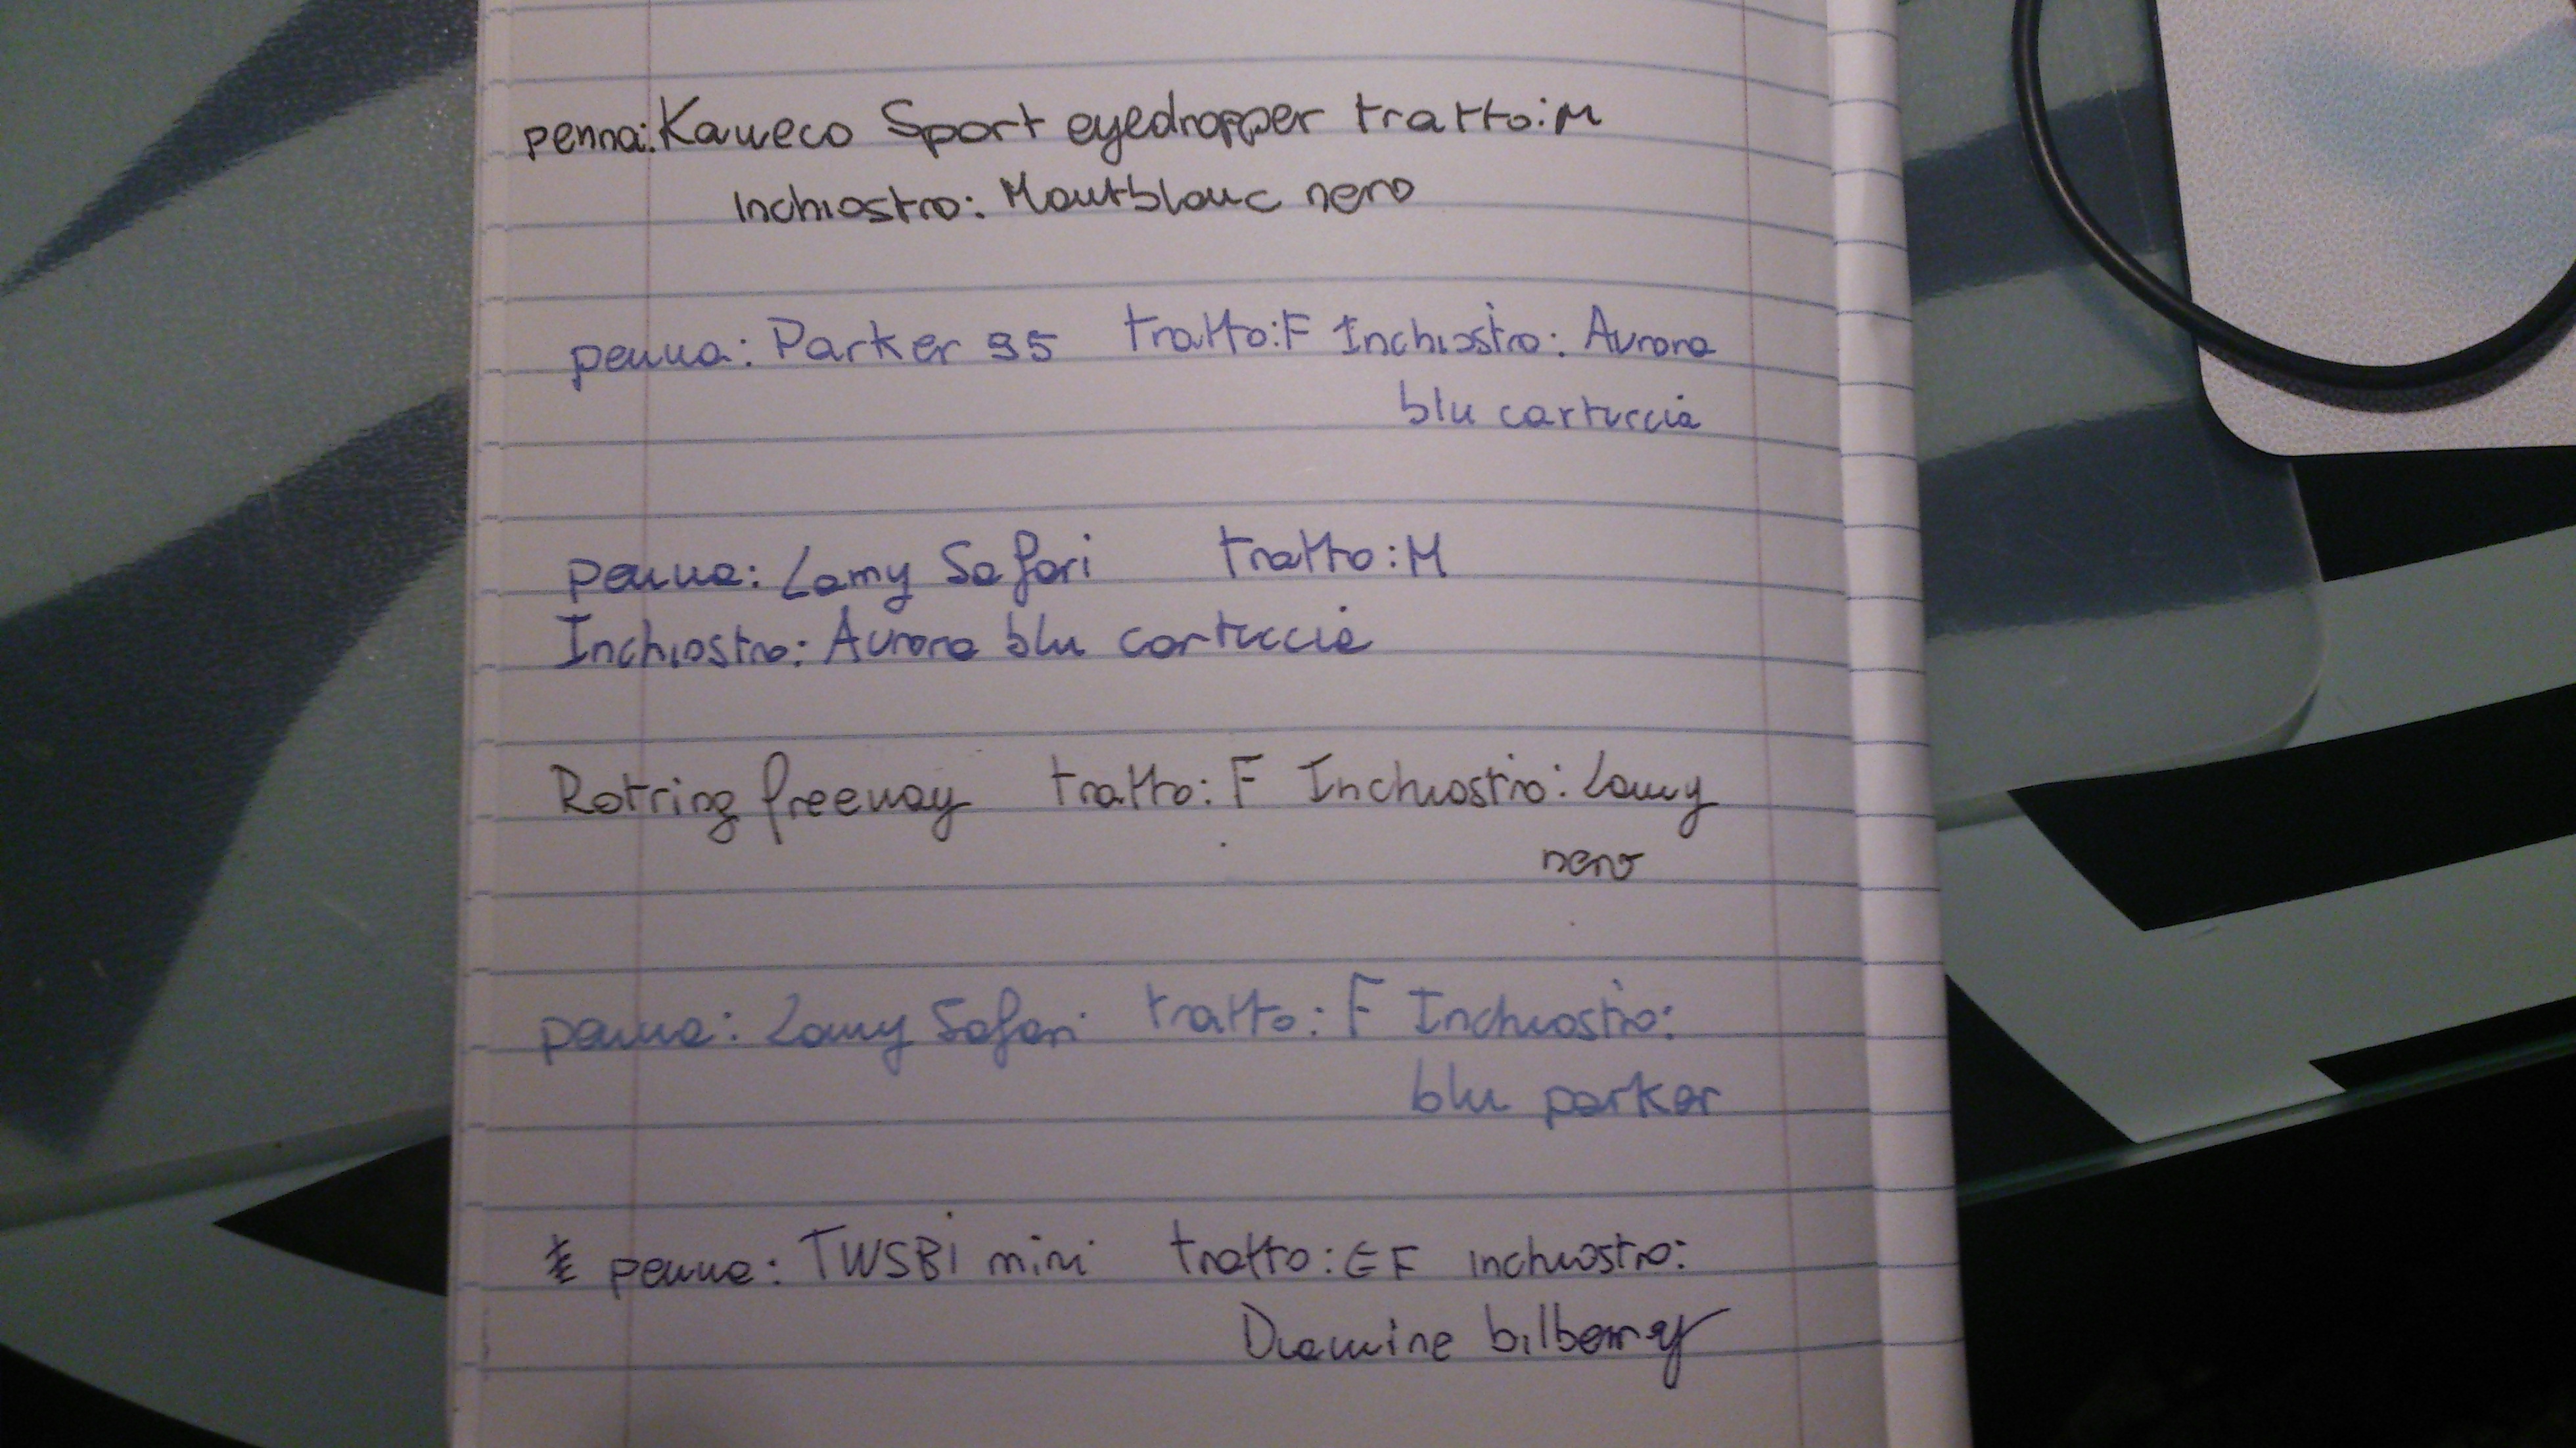 penna: Kaweco Sport eyedropper tratto: M
Inchiostro: Montblanc nero
penna: Parker 95 tratto: F Inchiostro: Aurora
blu cartuccia
penna: Lamy Safari tratto: M
Inchiostro: Aurora blu cartuccia
Rotring freeway tratto: F Inchiostro: Lamy
nero
penna: Lamy Safari tratto: F Inchiostro:
blu parker
penna: TWSBI mini tratto: EF inchiostro:
Diamine bilberry